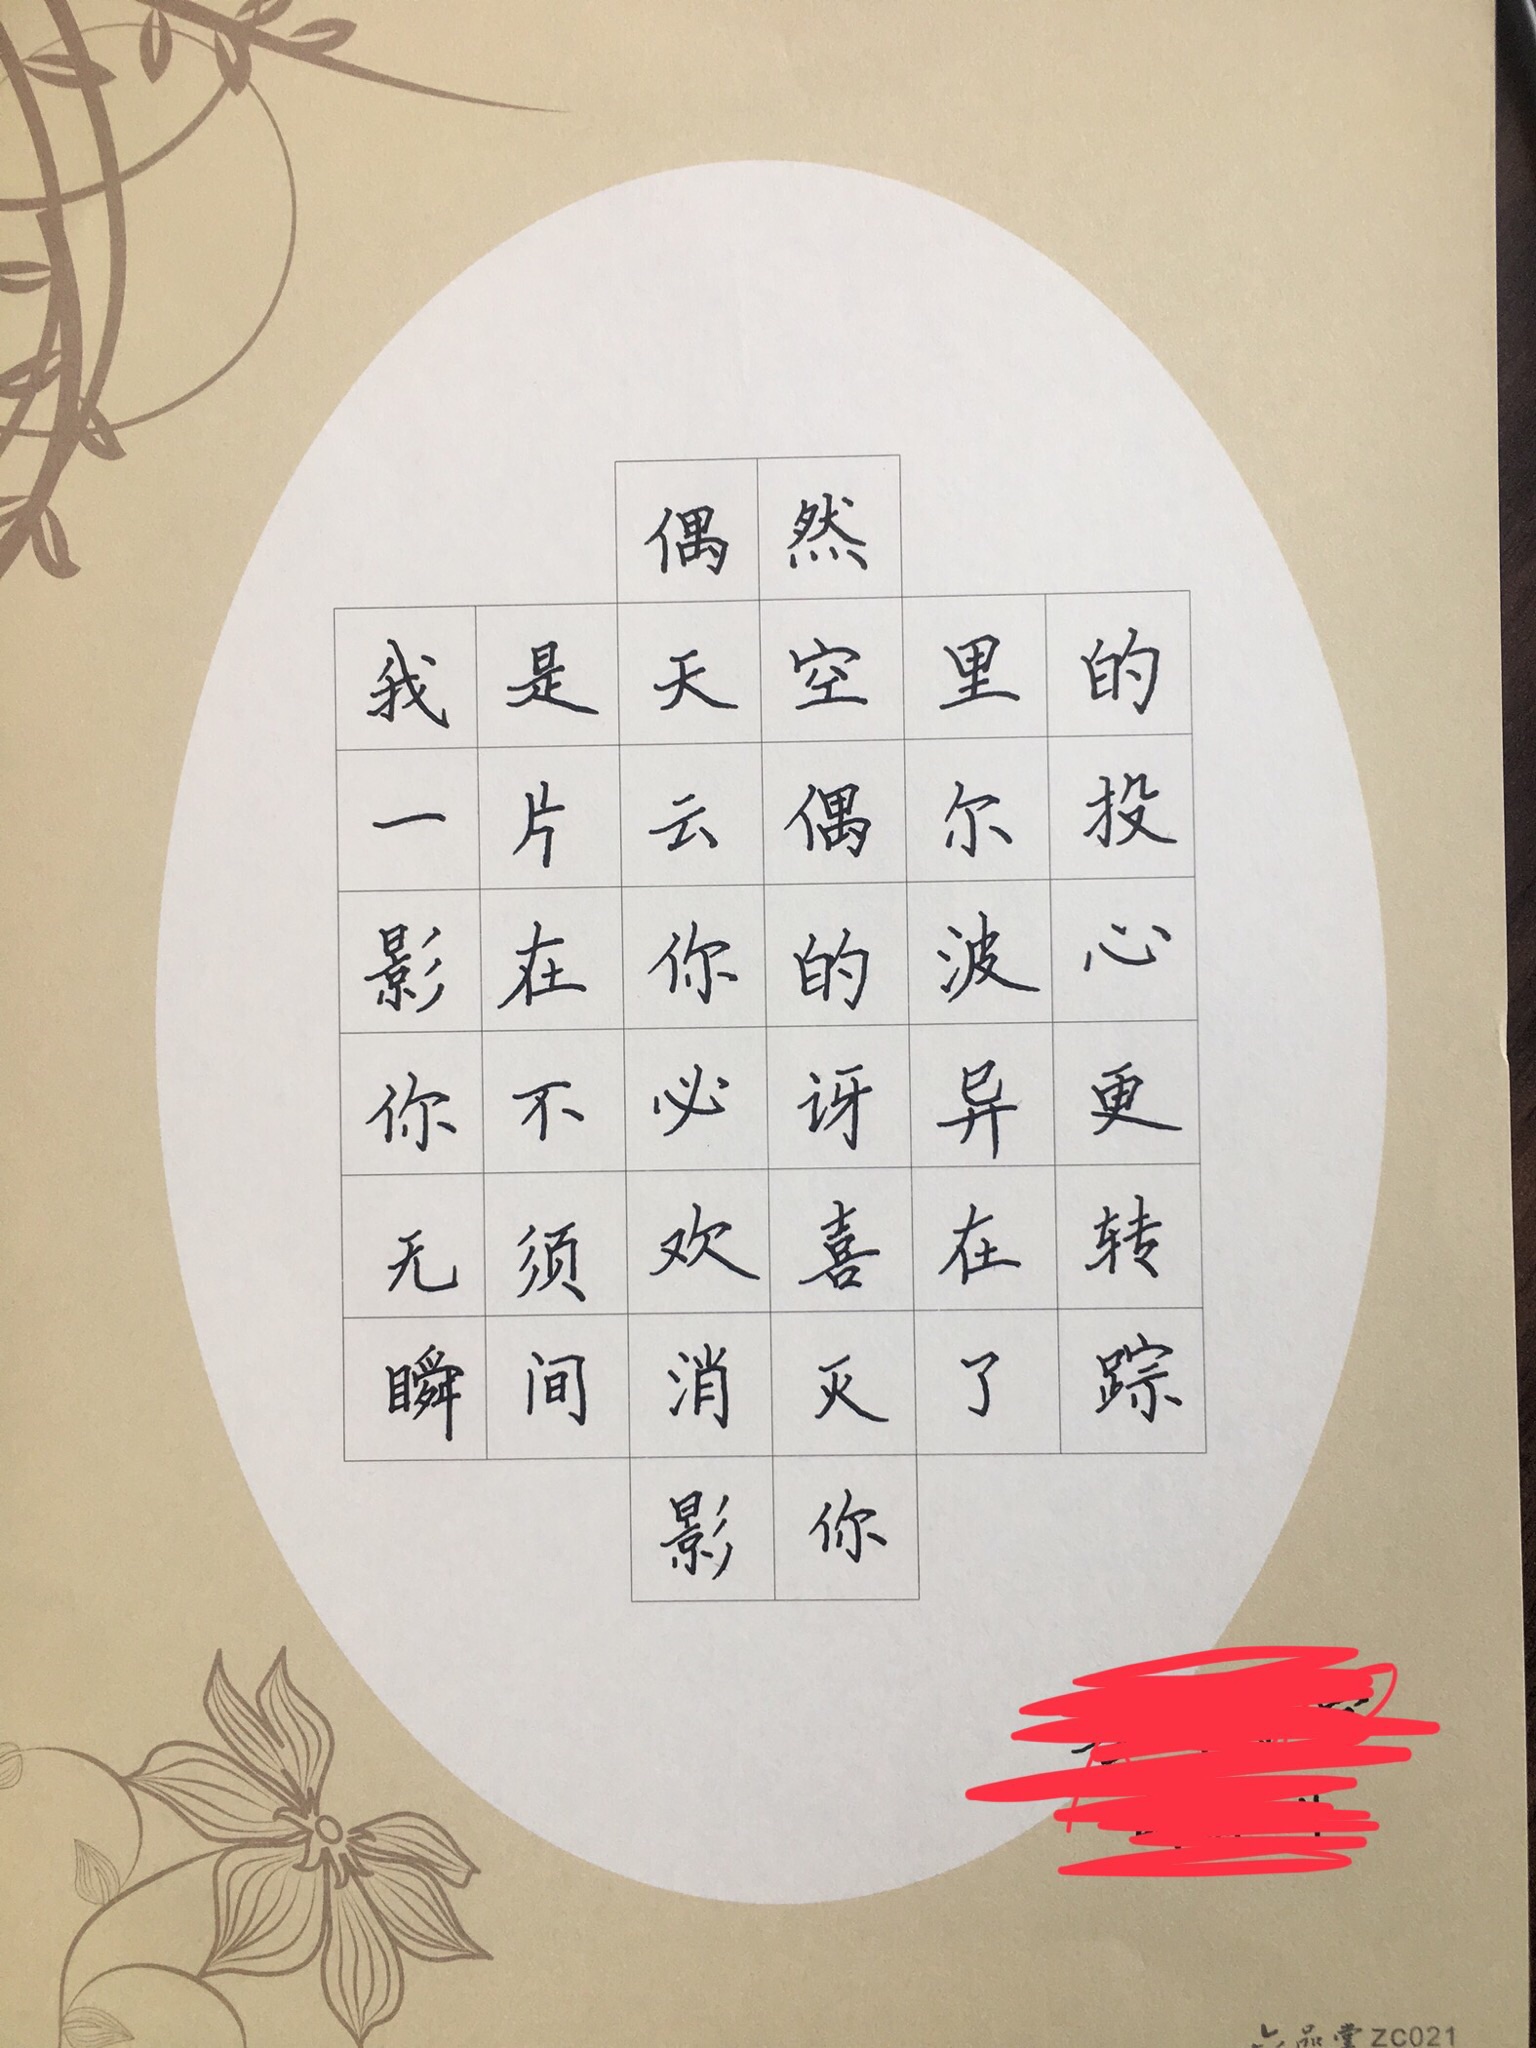 偶然
我是天空里的
一片云偶尔投
影在你的波心
你不必讶异更
无须欢喜在转
瞬间消灭了踪
影你
六品堂ZC021